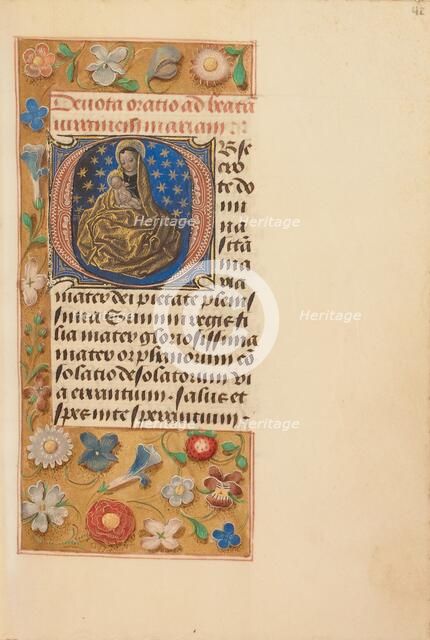 42
Deuota oratio ad beatā
uirginem mariam
Obse
cro
te do
mi
na
sctā
ma
ria
mater dei pietate plenis
sima Summi regis fi
lia mater gloriosissima
mater orphanorum cō
solatio desolatorum vi
a errantium . salus et
spes in te sperantium .
Heritage
Heritage
Heritage
Heritage
Heritage
Heritage